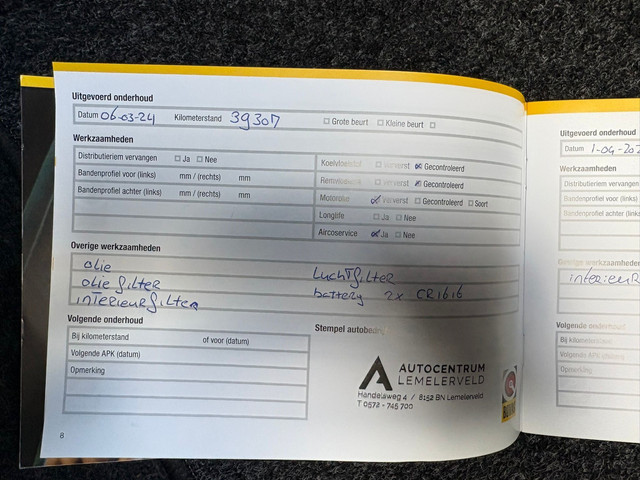 Uitgevoerd onderhoud
Datum 06-03-24 Kilometerstand 39307 Grote beurt Kleine beurt
Werkzaamheden
Distributieriem vervangen Ja Nee
Bandenprofiel voor (links) mm / (rechts) mm
Bandenprofiel achter (links) mm / (rechts) mm
Koelvloeistof Ververst Gecontroleerd
Remvloeistof Ververst Gecontroleerd
Motorolie Ververst Gecontroleerd Soort
Longlife Ja Nee
Aircoservice Ja Nee
Overige werkzaamheden
olie
olie filter
interieurfilter
Luchtfilter
battery 2x CR1616
Volgende onderhoud
Bij kilometerstand of voor (datum)
Volgende APK (datum)
Opmerking
Stempel autobedrijf
AUTOCENTRUM
LEMELERVELD
Handelsweg 4 / 8152 BN Lemelerveld
T 0572 - 745 700
BOVAG
8
Uitgevoerd onderhoud
Datum 1-04-202
Werkzaamheden
Distributieriem vervangen
Bandenprofiel voor (links)
Bandenprofiel achter (links)
Overige werkzaamheden
interieur
Volgende onderhoud
Bij kilometerstand
Volgende APK (datum)
Opmerking